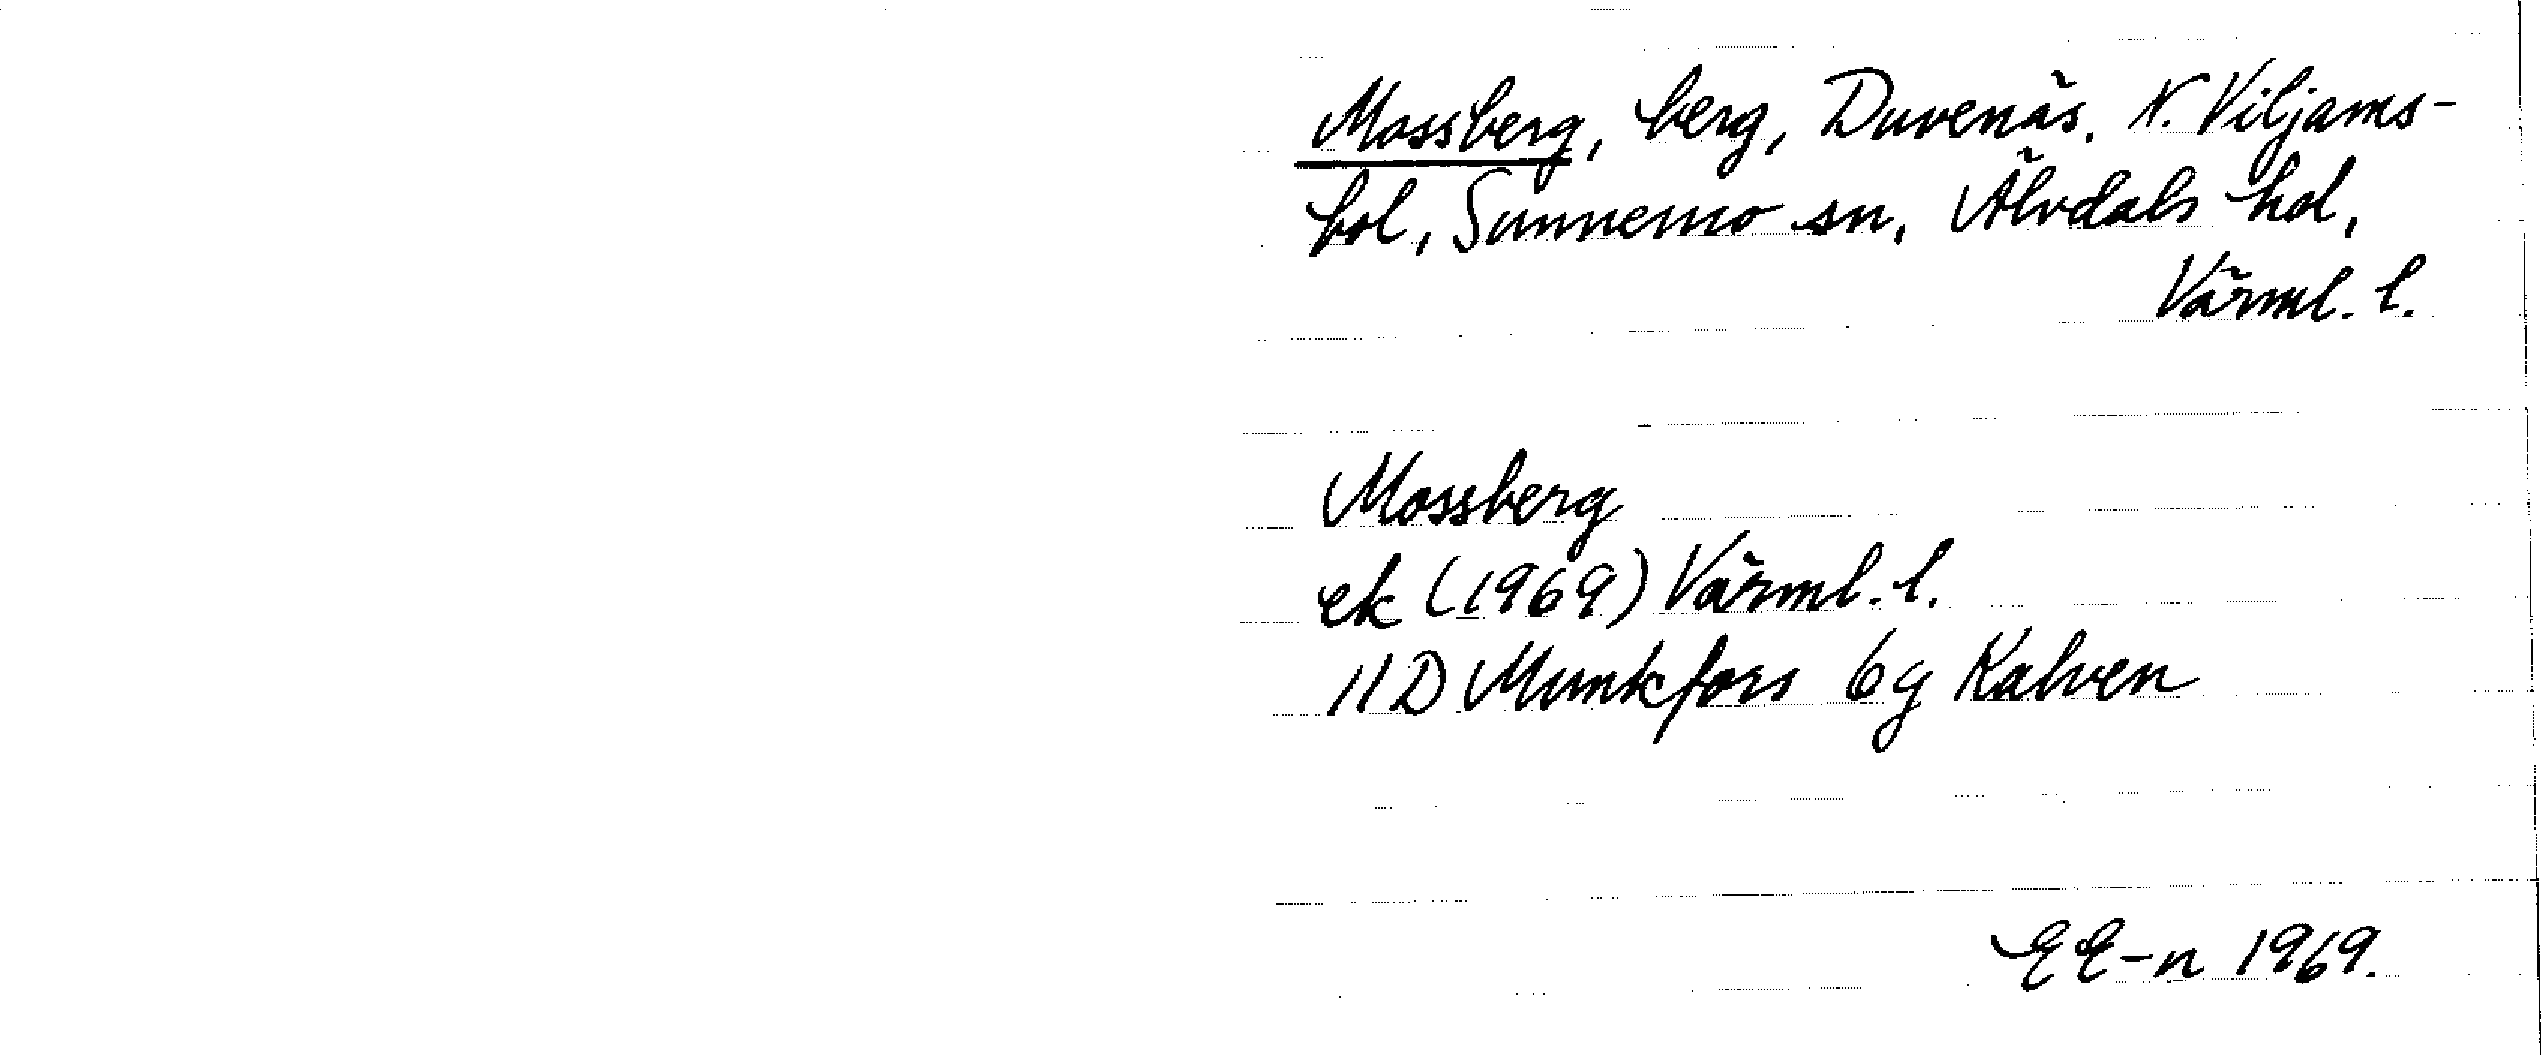 Mossberg, berg, Duvenäs. N. Viljams-
bol, Sunnemo sn, Älvdals hd,
Värml. l.
Mossberg
ek (1969) Värml. l.
11D Munkfors 6g Kalven
EE-n 1969.